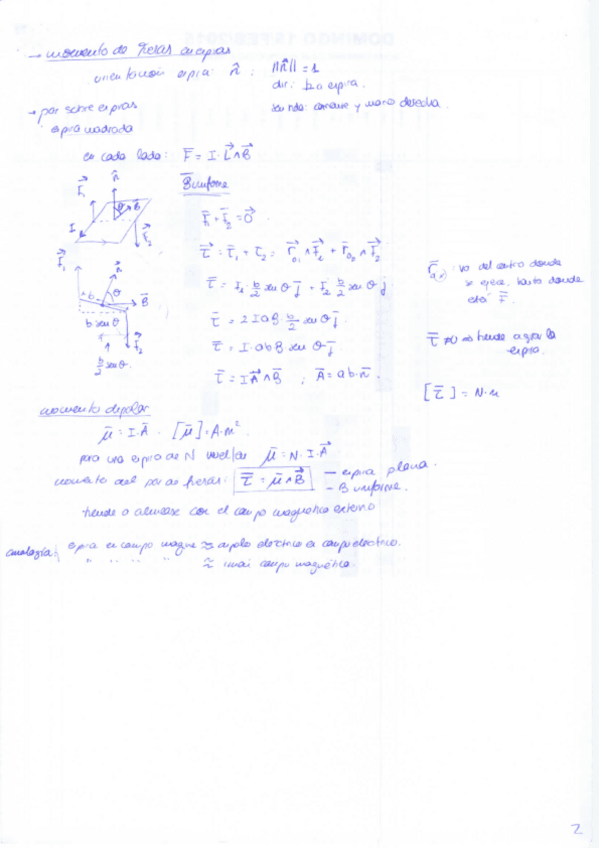 → momento de fzas en espiras
orientación espira: n̂ : ||n̂|| = 1
dir: ⊥ a espira.
sentido: corriente y mano derecha.
→ par sobre espiras
espira cuadrada
en cada lado: F̄ = I·L⃗∧B⃗
B̄ uniforme
F̄₁ + F̄₂ = 0⃗
τ⃗ = τ̄₁ + τ̄₂ = r⃗₀₁∧F⃗₁ + r⃗₀₂∧F⃗₂
r̄₀: va del centro donde
se ejerce, hasta donde
está F̄.
τ̄ = F₁·b/2 sen θ j̄ + F₂ b/2 sen θ j̄
τ̄ = 2IaB b/2 sen θ j̄.
τ̄ ≠ 0 ⇒ tiende a girar la
espira.
τ̄ = I·abB sen θ j̄
τ̄ = IA⃗∧B̄ ; Ā = ab·n̄.
[τ̄] = N·m
F⃗₁ n̂ θ B̄ I F⃗₂
F⃗₁ n⃗ θ b B̄
b sen θ F⃗₂
b/2 sen θ.
momento dipolar
μ̄ = I·Ā. [μ̄] = A·m².
para una espira de N vueltas μ̄ = N·I·A⃗
momento del par de fzas: τ̄ = μ̄∧B⃗ — espira plana.
– B uniforme.
tiende a alinearse con el campo magnético externo
analogía: espira en campo magne ≈ dipolo eléctrico en campo eléctrico.
" " " " ≈ imán campo magnético.
2